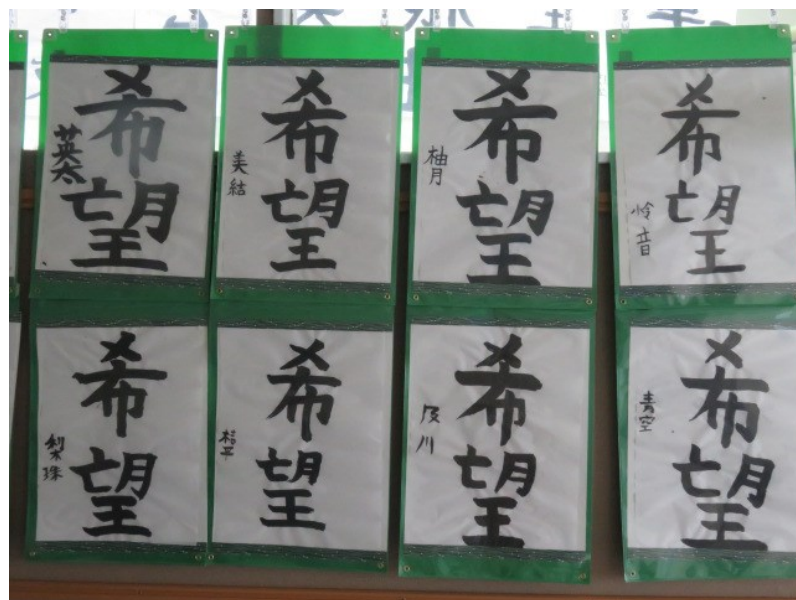 希望
英太
希望
美結
希望
柚月
希望
怜音
希望
梨珠
希望
希望
及川
希望
青空